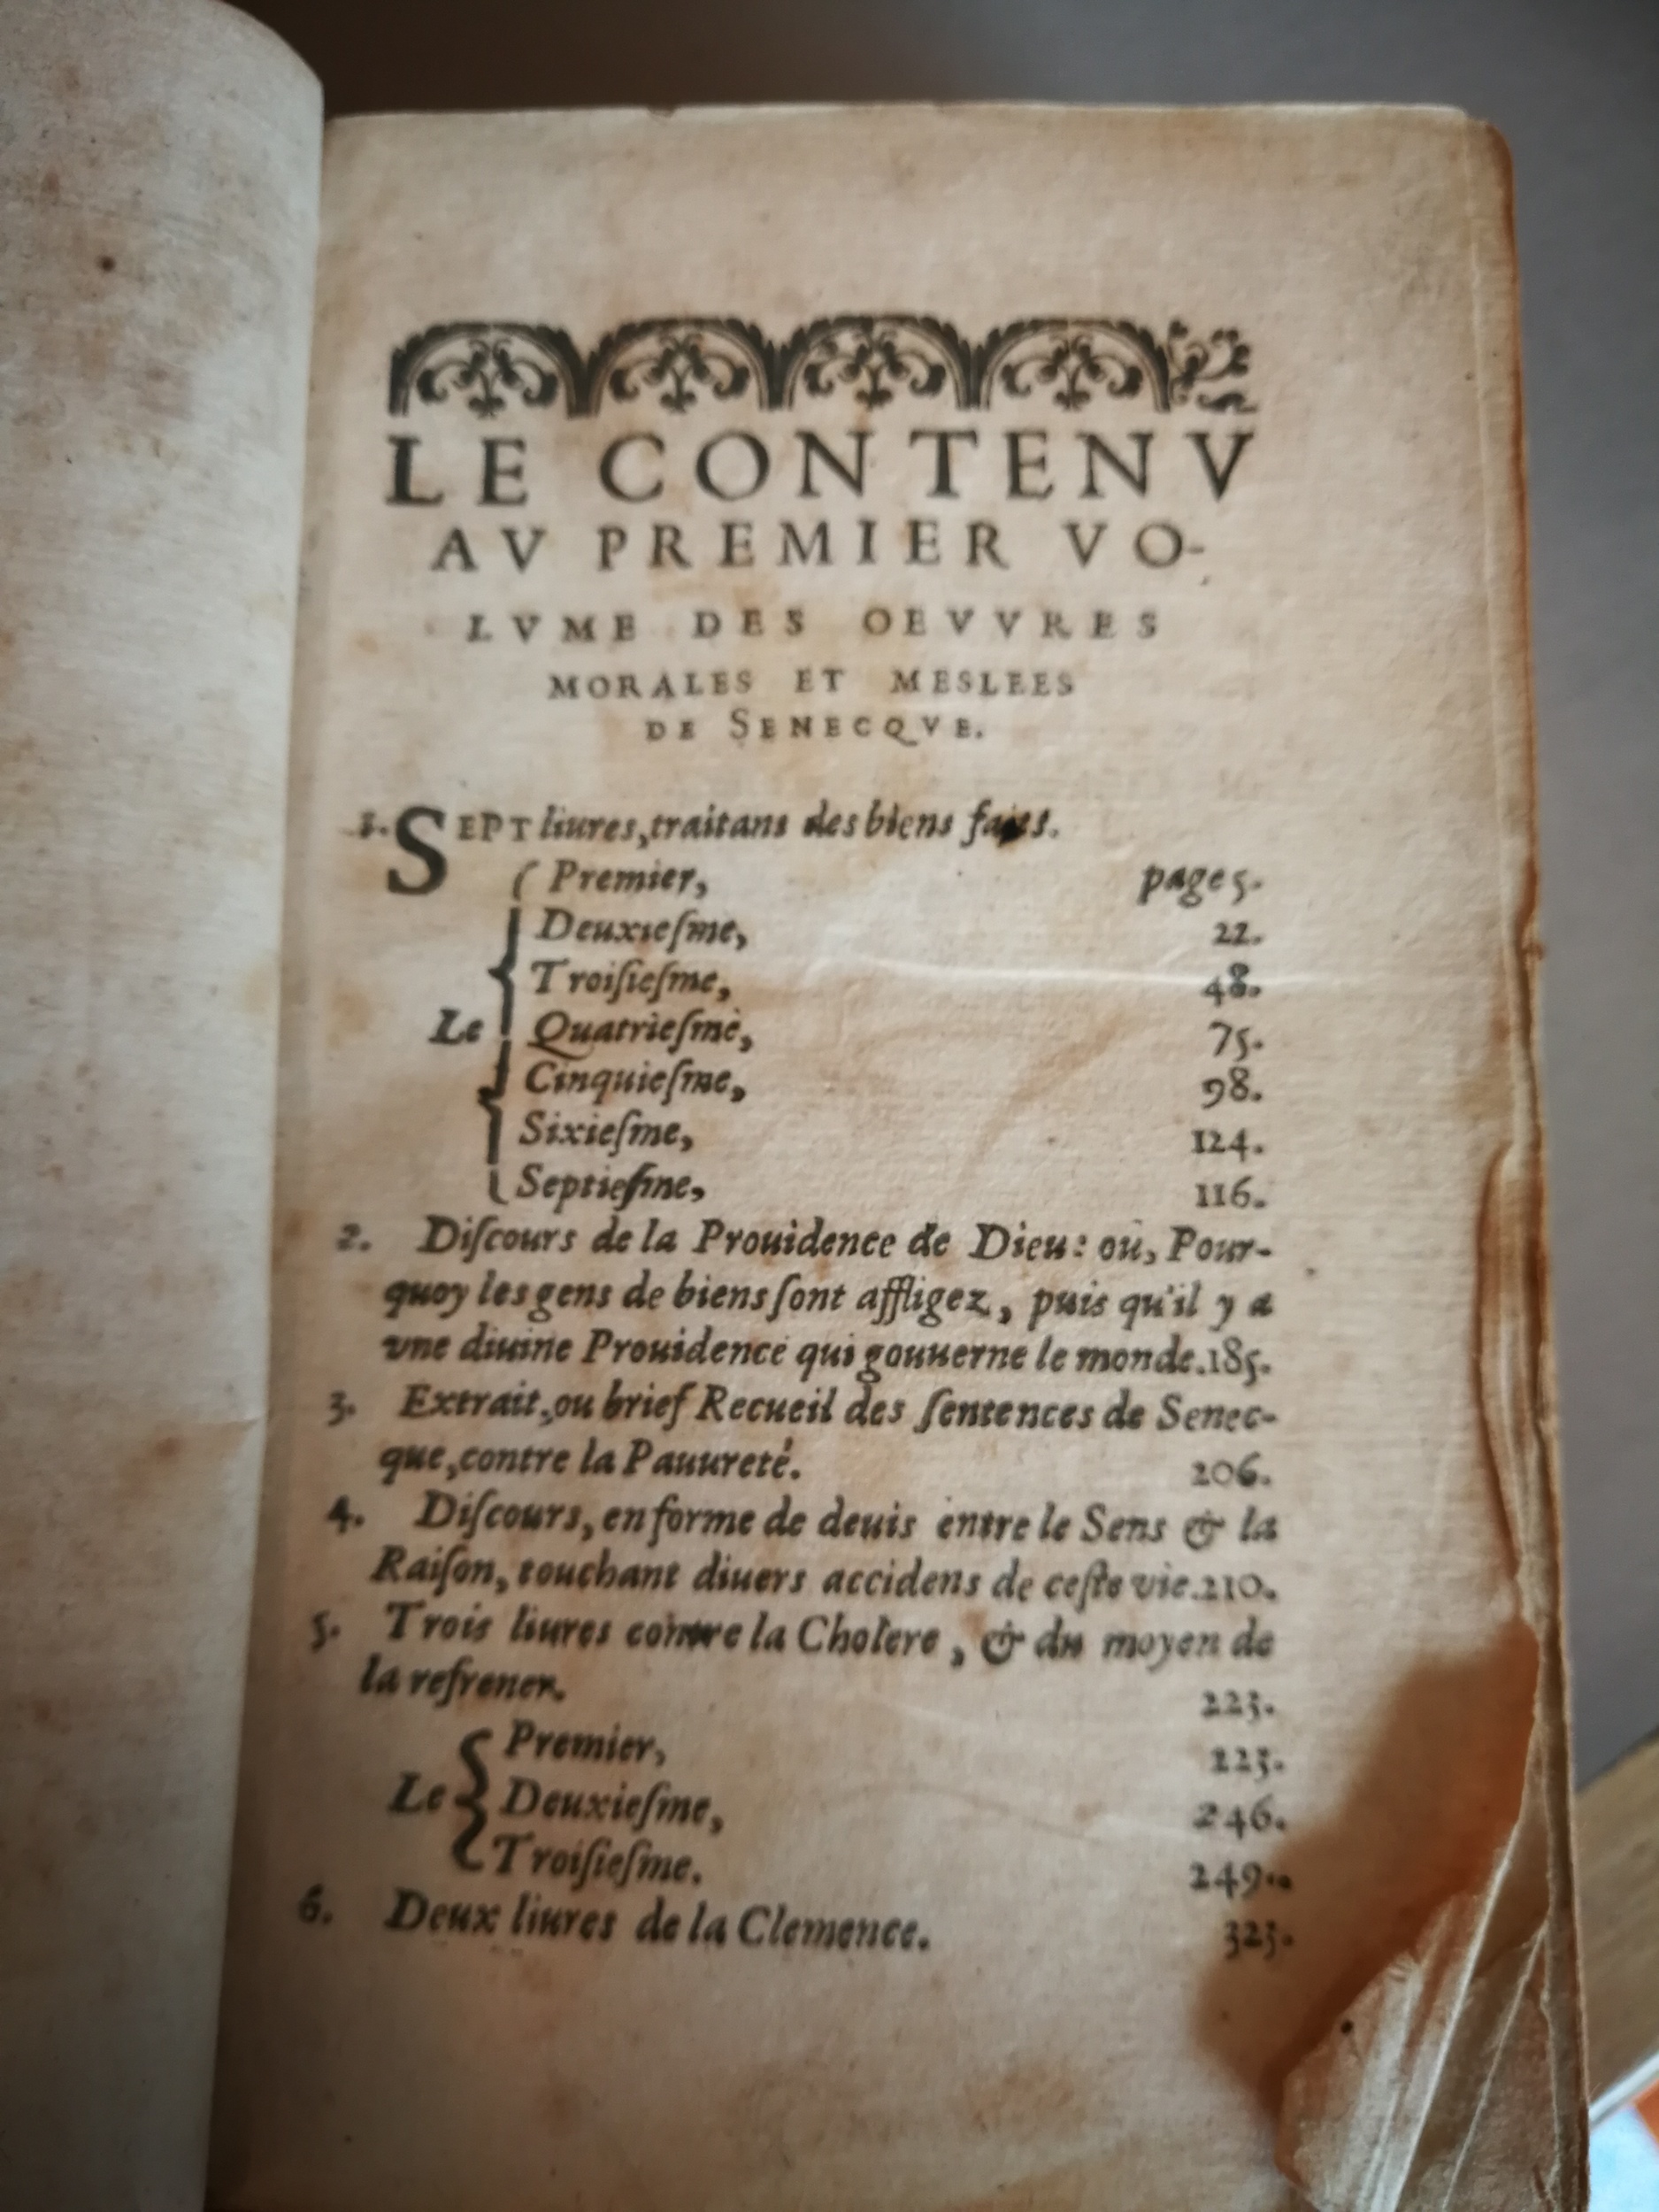 LE CONTENV
AV PREMIER VO-
LVME DES OEVVRES
MORALES ET MESLEES
DE SENECQVE.
1. SEPT liures, traitans des biens faits.
Premier, page 5.
Deuxieſme, 22.
Troiſieſme, 48.
Le Quatrieſme, 75.
Cinquieſme, 98.
Sixieſme, 124.
Septieſme, 116.
2. Diſcours de la Prouidence de Dieu: ou, Pour-
quoy les gens de biens ſont affligez, puis qu'il y a
vne diuine Prouidence qui gouuerne le monde. 185.
3. Extrait, ou brief Recueil des ſentences de Senec-
que, contre la Pauureté. 206.
4. Diſcours, en forme de deuis entre le Sens & la
Raiſon, touchant diuers accidens de ceſte vie. 210.
5. Trois liures contre la Cholere, & du moyen de
la refrener. 223.
Premier, 223.
Le Deuxieſme, 246.
Troiſieſme. 249.
6. Deux liures de la Clemence. 323.